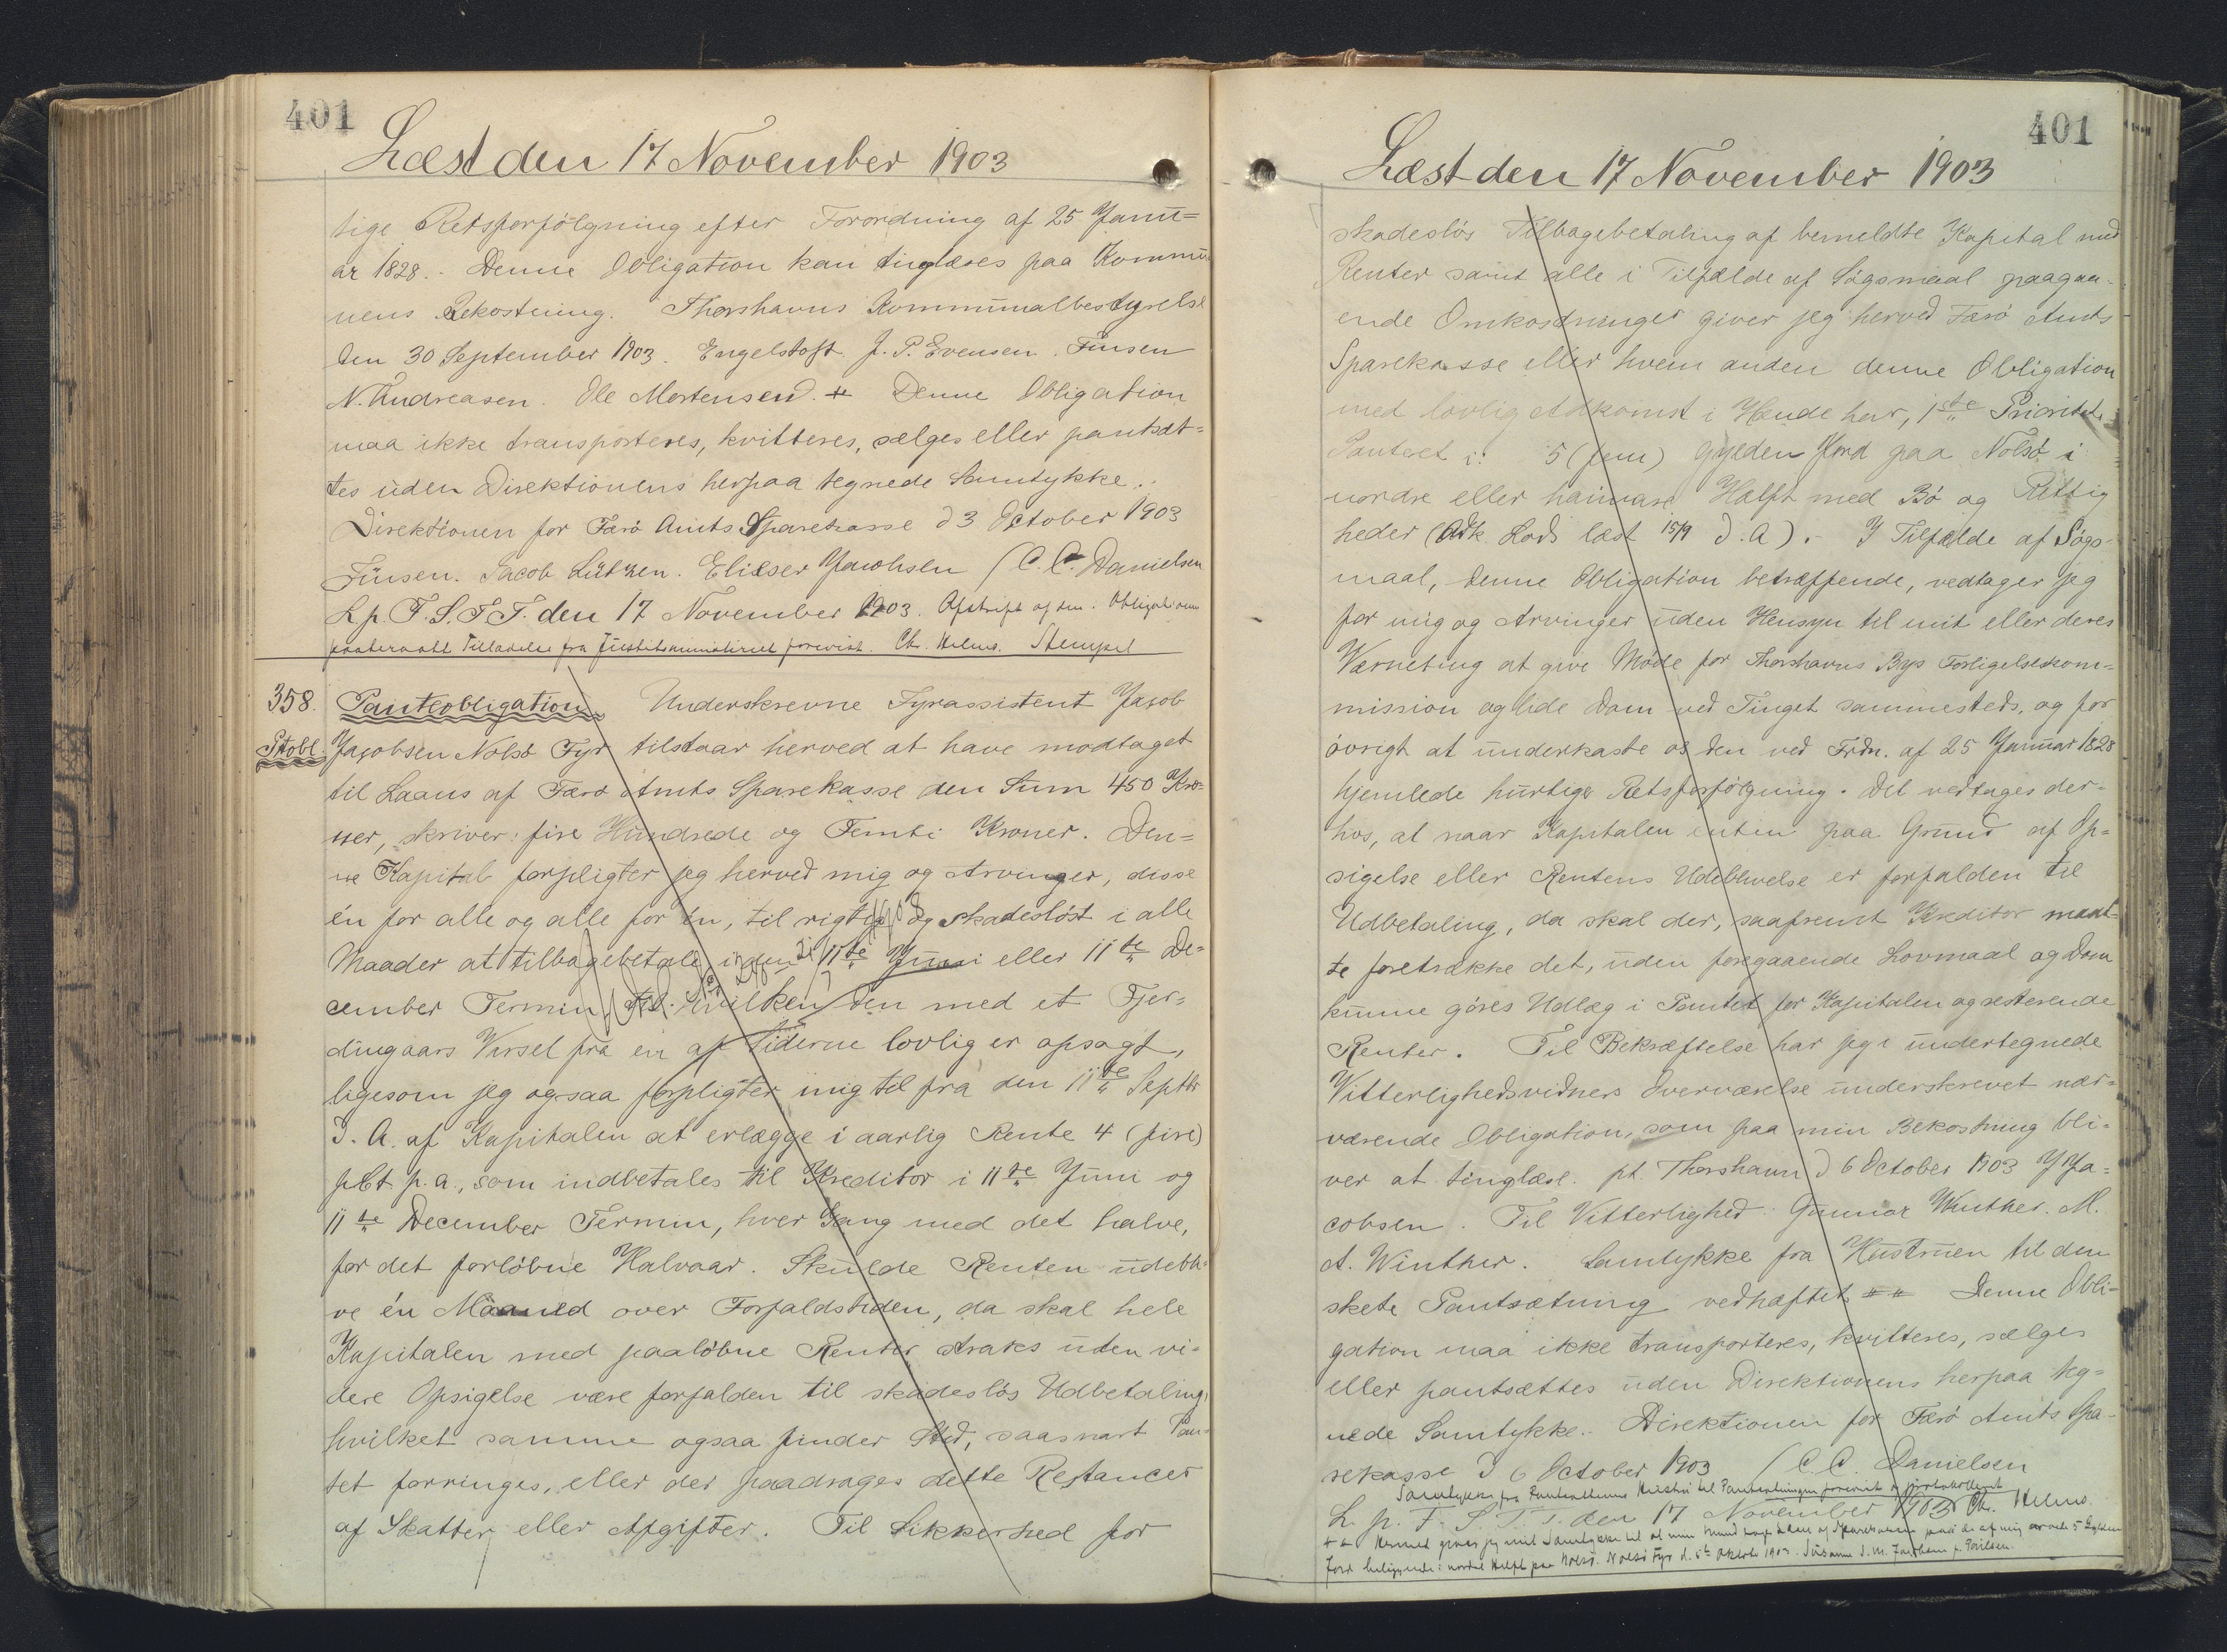 401
Læst den 17 November 1903
tige Retsforfölgning efter Forordning af 25 Janu=
ar 1828. - Denne Obligation kan tinglæses paa Kommu
nens Bekostning. Thorshavns Kommunalbestyrelse
den 30 September 1903. Engelstoft. J. P. Evensen. Finsen
N. Andreasen. Ole Mortensen. Denne Obligation
maa ikke transporteres, kvitteres, sælges eller pantsæt=
tes uden Direktionens herpaa tegnede Samtykke.
Direktionen for Færö Amts Sparekasse d 3 October 1903
Finsen. Jacob Lützen. Elieser Jacobsen / C. C. Danielsen
L. p. F. S. T. T. den 17 November 1903. Afskrift af den Obligationen
paategnede Tilladelse fra Justitsministeriet forevist. Chr. Helms. Stempel
358. Panteobligation Underskrevne Fyrassistent Jacob
Ptobl. Jacobsen Nolsö Fyr tilstaar herved at have modtaget
til Laans af Færö Amts Sparekasse den Sum 450 Kro=
ner, skriver: fire Hundrede og Femti Kroner. Den=
ne Kapital forpligter jeg herved mig og Arvinger, disse
én for alle og alle for én, til rigtig og skadeslöst i alle
Maader at tilbagebetale i den 11te Juni eller 11te De=
cember Termin, til hvilken den med et Fjer=
dingaars Varsel fra en af Siderne lovlig er opsagt,
ligesom jeg ogsaa forpligter mig til fra den 11te Septbr
d. A. af Kapitalen at erlægge i aarlig Rente 4 (fire)
pCt p. a., som indbetales til Kreditor i 11te Juni og
11te December Termin, hver Gang med det halve,
for det forlöbne Halvaar. Skulde Renten udebli=
ve én Maaned over Forfaldstiden, da skal hele
Kapitalen med paalöbne Renter straks uden vi=
dere Opsigelse være forfalden til skadeslös Udbetaling,
hvilket samme ogsaa finder Sted, saasnart Pan=
tet forringes, eller der paadrages dette Restancer
af Skatter eller Afgifter. Til Sikkerhed for
401
Læst den 17 November 1903
skadeslös Tilbagebetaling af bemeldte Kapital med
Renter samt alle i Tilfælde af Sögsmaal paagaa-
ende Omkostninger giver jeg herved Færö Amts
Sparekasse eller hvem anden denne Obligation
med lovlig Adkomst i Hænde har, 1ste Prioritets
Panteret i: 5 (fem) Gylden Jord paa Nolsö i
nordre eller haimare Halft med Bö og Rettig
heder (Adk. Lods læst 15/9 d. A). - I Tilfælde af Sögs-
maal, denne Obligation betræffende, vedtager jeg
for mig og Arvinger uden Hensyn til mit eller deres
Værneting at give Möde for Thorshavns Bys Forligelseskom=
mission og lide Dom ved Tinget sammesteds, og for
övrigt at underkaste os den ved Frdn. af 25 Januar 1828
hjemlede hurtige Retsforfölgning. Det vedtages der=
hos, at naar Kapitalen enten paa Grund af Op=
sigelse eller Rentens Udeblivelse er forfalden til
Udbetaling, da skal der, saafremt Kreditor maat=
te foretrække det, uden foregaaende Lovmaal og Dom
kunne göres Udlæg i Pantet for Kapitalen og resterende
Renter. Til Bekræftelse har jeg i undertegnede
Vitterlighedsvidners Overværelse underskrevet nær=
værende Obligation, som paa min Bekostning bli=
ver at tinglæse. pt. Thorshavn d 6 October 1903 J Ja=
cobsen. Til Vitterlighed: Gunnar Winther. M.
A. Winther. Samtykke fra Hustruen til den
skete Pantsætning vedhæftet Denne Obli=
gation maa ikke transporteres, kvitteres, sælges
eller pantsættes uden Direktionens herpaa teg=
nede Samtykke. Direktionen for Færö Amts Spa-
rekasse d 6 October 1903 / C. C. Danielsen
Samtykke fra Pantsætterens Hustru til Pantsætningen forevist og protokolleret
L. p. F. S. T. T. den 17 November 1903 Chr. Helms.
Hermed giver jeg mit Samtykke til at min Mand af Sparekassen paa de af mig 5 Gylden
Jord beliggende i nordre Halft paa Nolsö. Nolsö Fyr d. 5te Oktober 1903. Susanne S. M. Jacobsen f. Poulsen.